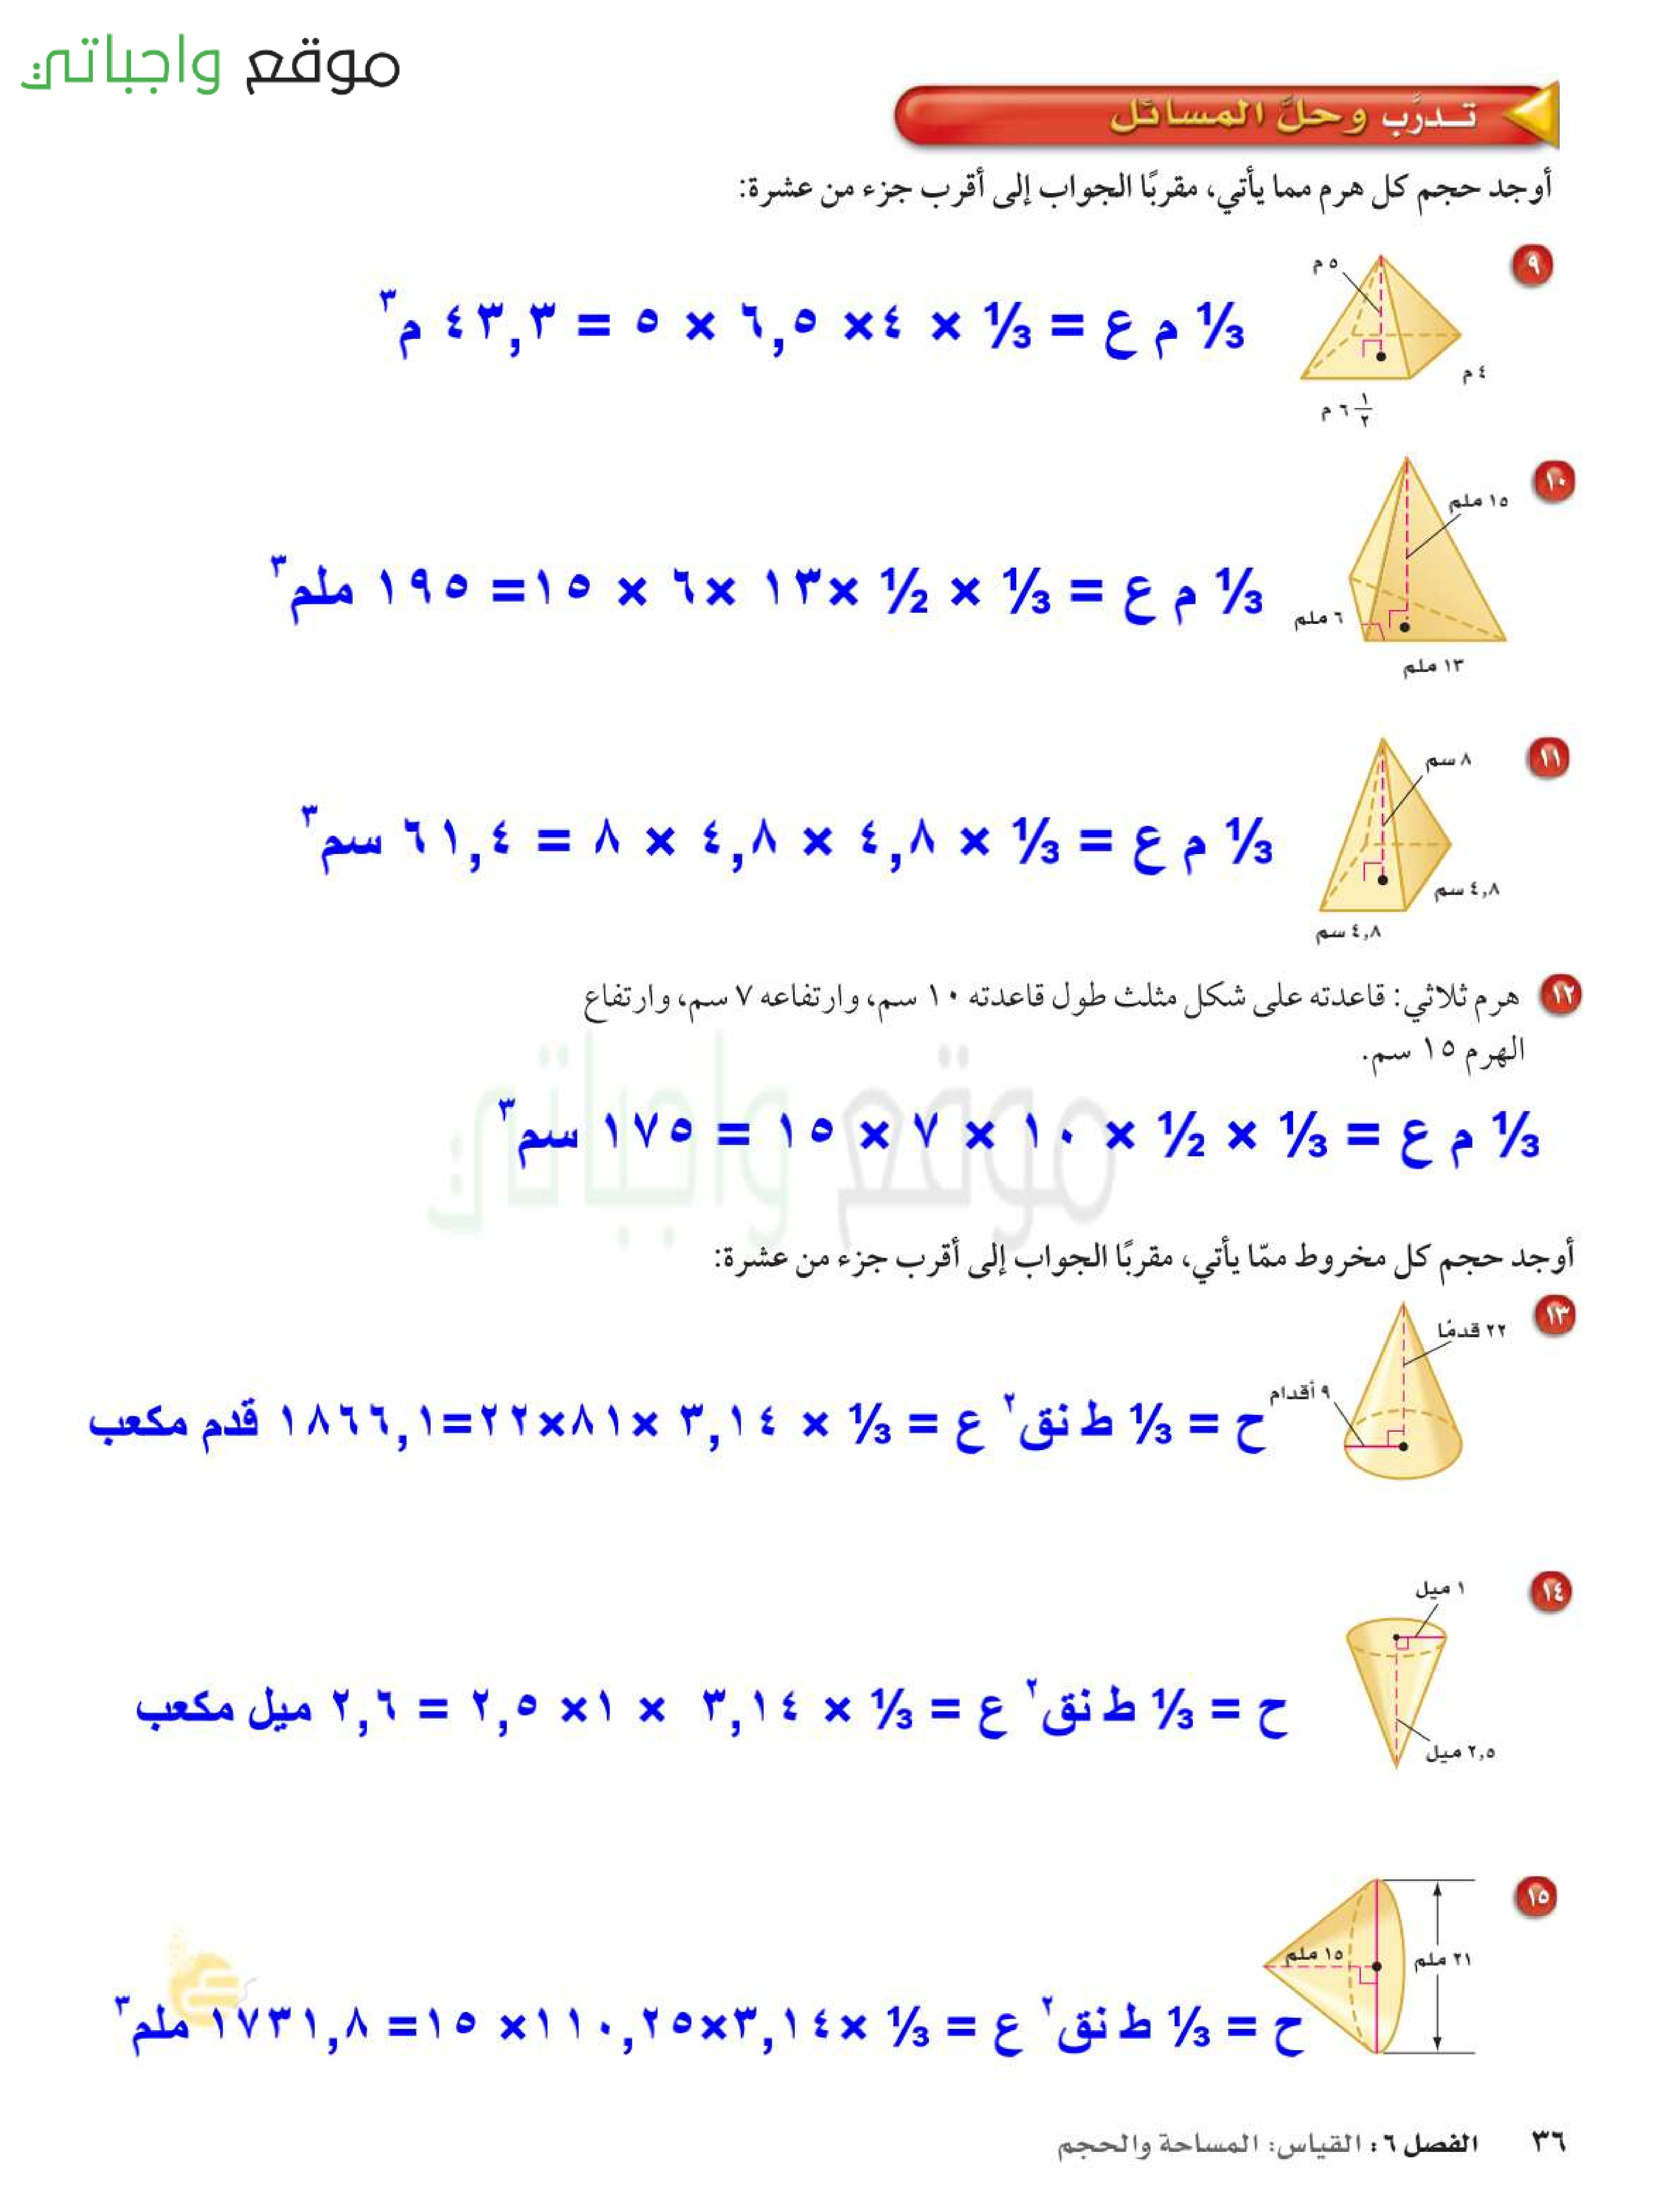 موقع واجباتي
تدرَّب وحلَّ المسائل
أوجد حجم كل هرم مما يأتي، مقربًا الجواب إلى أقرب جزء من عشرة:
٩
٥ م
٤ م
٦ ١/٢ م
⅓ م ع = ⅓ × ٤× ٦,٥ × ٥ = ٤٣,٣ م³
١٠
١٥ ملم
٦ ملم
١٣ ملم
⅓ م ع = ⅓ × ½ ×١٣ ×٦ × ١٥= ١٩٥ ملم³
١١
٨ سم
٤,٨ سم
٤,٨ سم
⅓ م ع = ⅓ × ٤,٨ × ٤,٨ × ٨ = ٦١,٤ سم³
١٢ هرم ثلاثي: قاعدته على شكل مثلث طول قاعدته ١٠ سم، وارتفاعه ٧ سم، وارتفاع
الهرم ١٥ سم.
موقع واجباتي
⅓ م ع = ⅓ × ½ × ١٠ × ٧ × ١٥ = ١٧٥ سم³
أوجد حجم كل مخروط ممّا يأتي، مقربًا الجواب إلى أقرب جزء من عشرة:
١٣
٢٢ قدمًا
٩ أقدام
ح = ⅓ ط نق² ع = ⅓ × ٣,١٤ ×٨١×٢٢=١٨٦٦,١ قدم مكعب
١٤
١ ميل
٢,٥ ميل
ح = ⅓ ط نق² ع = ⅓ × ٣,١٤ × ١× ٢,٥ = ٢,٦ ميل مكعب
١٥
١٥ ملم
٢١ ملم
ح = ⅓ ط نق² ع = ⅓ ×٣,١٤×١١٠,٢٥× ١٥= ١٧٣١,٨ ملم³
٣٦ الفصل ٦: القياس: المساحة والحجم